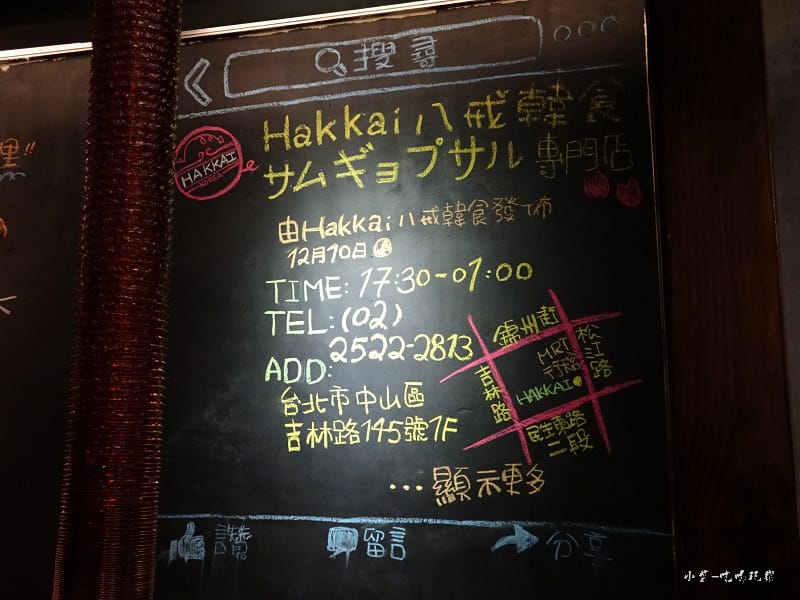 里!!
搜尋
Hakkai 八戒韓食
サムギョプサル 專門店
HAKKAI
KOREA
由Hakkai八戒韓食發佈
12月10日
TIME: 17:30-01:00
TEL: (02)
2522-2813
ADD:
台北市中山區
吉林路145號1F
錦州街
松江路
吉林路
MRT
行天宮
HAKKAI
民生東路
二段
...顯示更多
讚
留言
分享